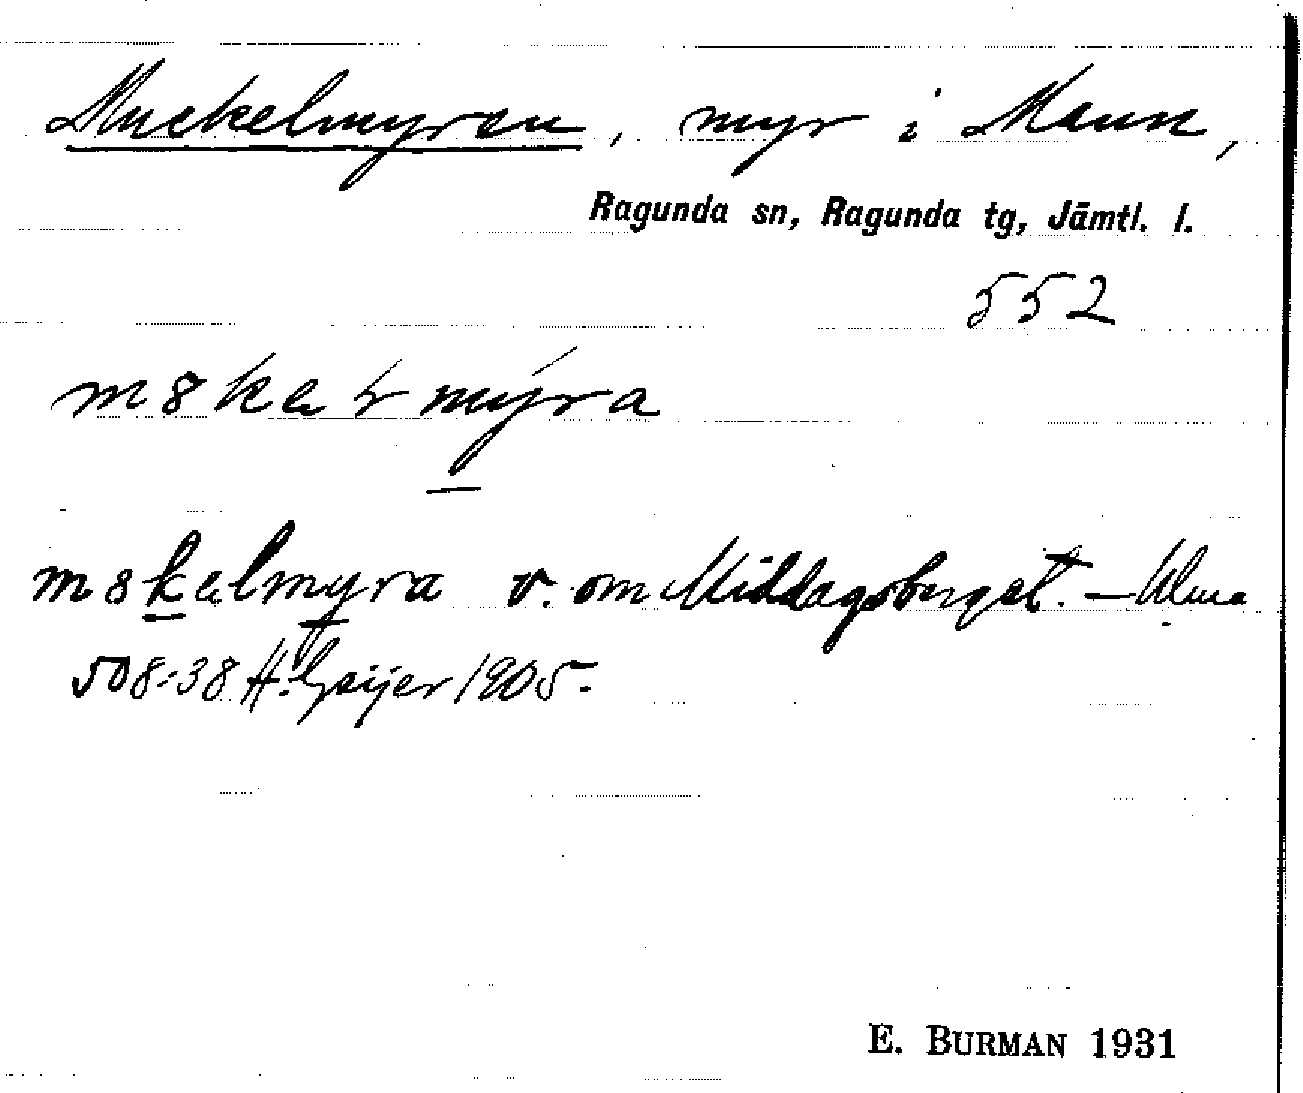 Muckelmyren, myr i Mann,
Ragunda sn, Ragunda tg, Jämtl. l.
552
m8kelmyra v. om Middagsberget. –
508:38 H. Geijer 1905.
E. BURMAN 1931